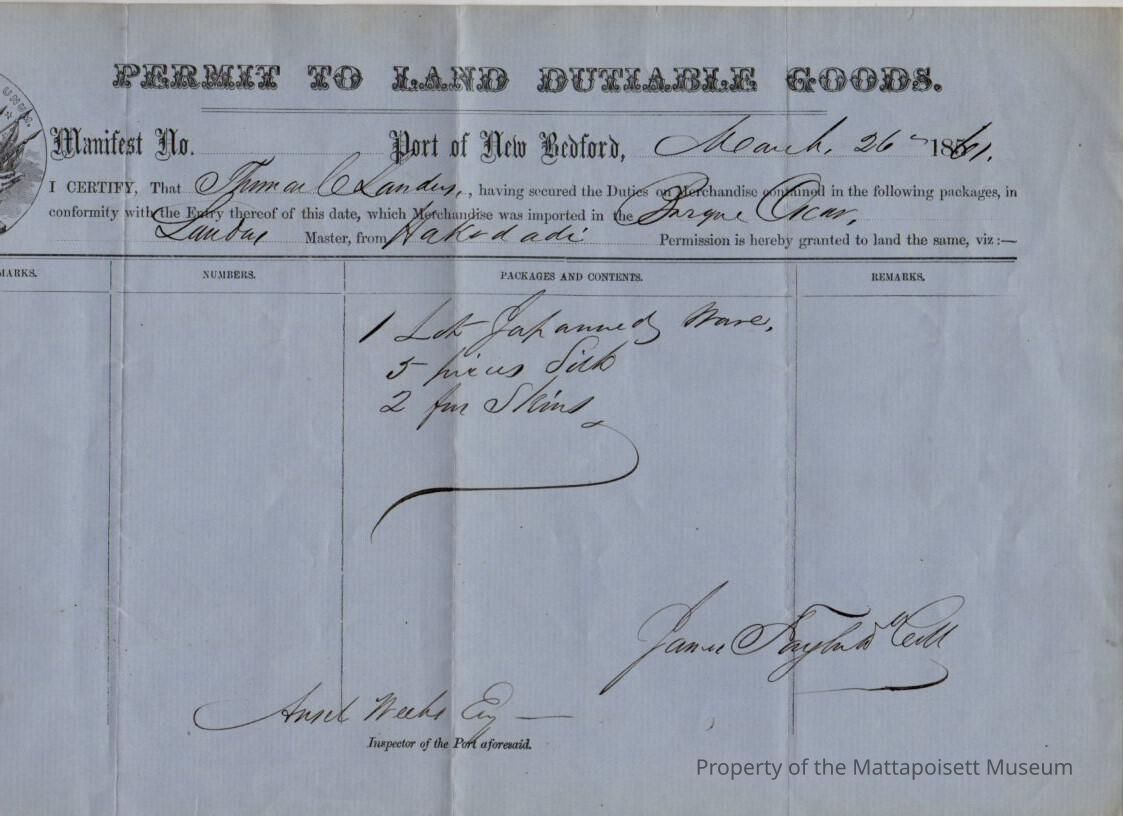 PERMIT TO LAND DUTIABLE GOODS.
Manifest No. Port of New Bedford, March. 26 1861.
I CERTIFY, That Thomas C Landers, having secured the Duties on Merchandise contained in the following packages, in
conformity with the Entry thereof of this date, which Merchandise was imported in the Barque Oscar,
Landers Master, from Hakodadi Permission is hereby granted to land the same, viz:—
MARKS. NUMBERS. PACKAGES AND CONTENTS. REMARKS.
1 Lot Japanned Ware,
5 pieces Silk
2 fur Skins
James Coll
Ansel Weeks Esq
Inspector of the Port aforesaid.
Property of the Mattapoisett Museum